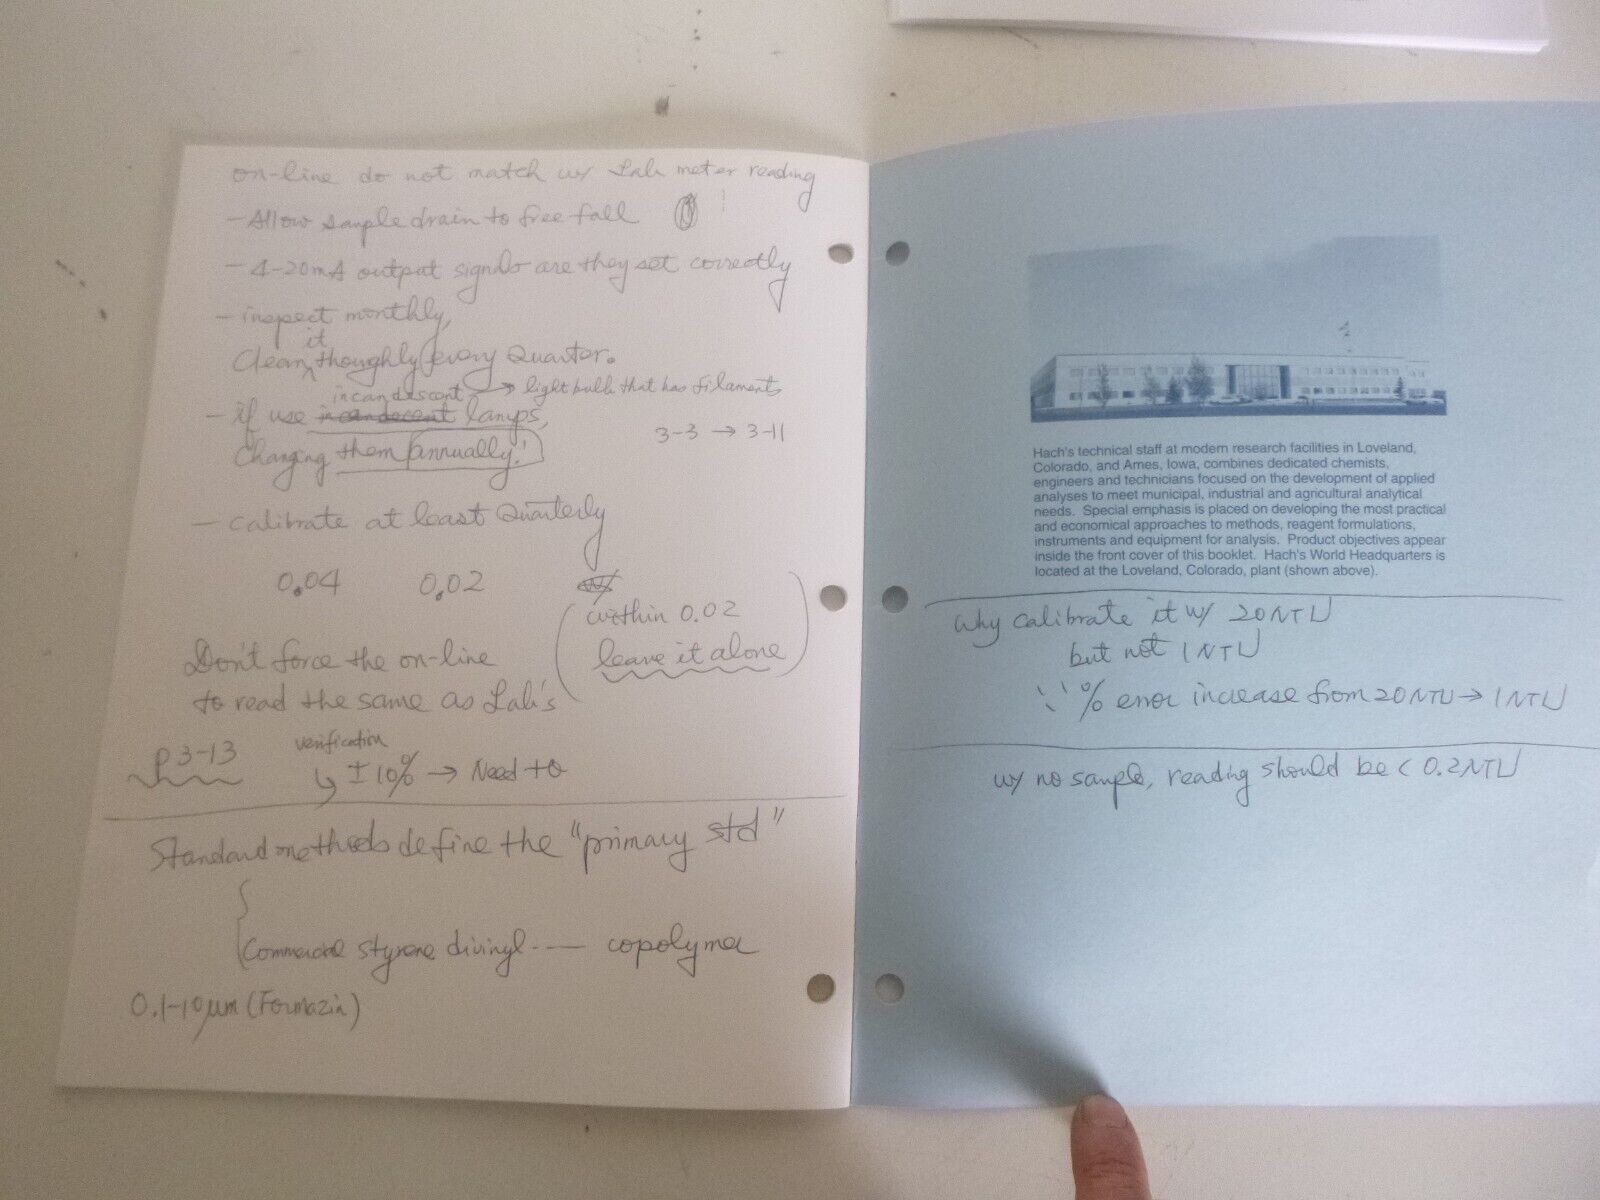 on-line do not match w/ Lab meter reading
- Allow sample drain to free fall
- 4-20mA output signals are they set correctly
- inspect monthly,
it
Clean thoughly every Quarter.
incandescent → light bulb that has filaments
- if use incandecent lamps,
3-3 → 3-11
Changing them annually!
- calibrate at least Quarterly
0.04 0.02
within 0.02
leave it alone
Don't force the on-line
to read the same as Lab's
p 3-13
verification
± 10% → Need to
Standard methods define the "primary std"
Commercial styrene divinyl ---- copolymer
0.1-10 µm (Formazin)
Hach's technical staff at modern research facilities in Loveland,
Colorado, and Ames, Iowa, combines dedicated chemists,
engineers and technicians focused on the development of applied
analyses to meet municipal, industrial and agricultural analytical
needs. Special emphasis is placed on developing the most practical
and economical approaches to methods, reagent formulations,
instruments and equipment for analysis. Product objectives appear
inside the front cover of this booklet. Hach's World Headquarters is
located at the Loveland, Colorado, plant (shown above).
Why calibrate it w/ 20 NTU
but not 1 NTU
∵ % error increase from 20 NTU → 1 NTU
w/ no sample, reading should be < 0.2 NTU